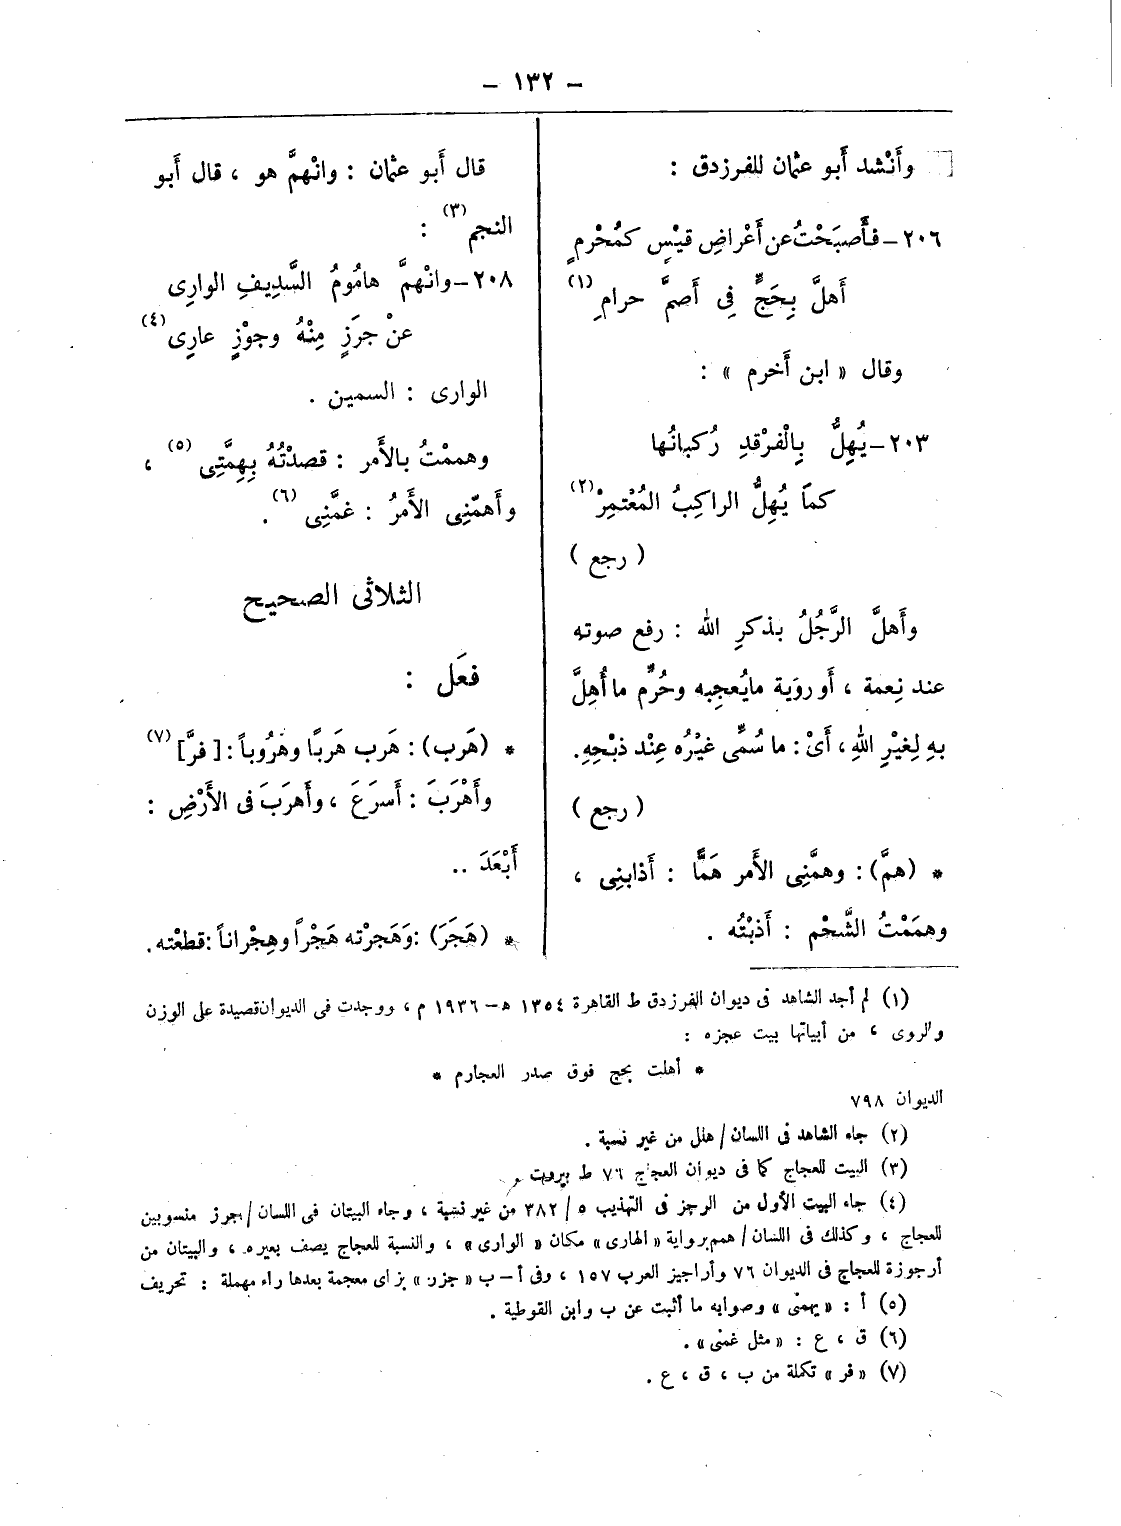 – ١٣٢ –
وأَنْشد أَبو عثمان للفرزدق :
٢٠٦ – فأَصبَحْتُ عن أَعْراضِ قيْسٍ كمُحْرِمٍ
أَهلَّ بِحَجٍّ فِى أَصمَّ حرامِ (١)
وقال « ابن أَخرم » :
٢٠٣ – يُهِلُّ بِالْفرْقدِ رُكبانُها
كماَ يُهِلُّ الراكِبُ المُعْتمِرْ (٢)
( رجع )
وأَهلَّ الرَّجُلُ بذكرِ الله : رفع صوته
عند نِعمة ، أَو روَية مايُعجِبه وحُرِّم ما أُهِلَّ
بهِ لِغيْرِ اللهِ ، أَىْ : ما سُمِّى غيْرُه عِنْد ذبْحِهِ.
( رجع )
* (همَّ) : وهمَّنِى الأَمر هَمًّا : أَذابنِى ،
وهمَمْتُ الشَّحْم : أَذبْتُه .
قال أَبو عثمان : وانْهمَّ هو ، قال أَبو
النجم (٣) :
٢٠٨ – وانْهمَّ هامُومُ السَّدِيفِ الوارِى
عنْ جرَزٍ مِنْهُ وجوْزٍ عارِى (٤)
الوارى : السمين .
وهممْتُ بالأَمر : قصدْتُهُ بِهِمَّتِى (٥) ،
وأَهمّنِى الأَمرُ : غمَّنِى (٦) .
الثلاثى الصحيح
فعَل :
* (هَرب) : هَرب هَربًا وهرُوباً : [ فرَّ ] (٧)
وأَهْرَبَ : أَسرَعَ ، وأَهرَبَ فى الأَرْضِ :
أَبْعَدَ ..
* (هَجَرَ) : وَهَجرْته هَجْراً وهِجْراناً : قطعْته .
(١) لم أجد الشاهد فى ديوان الفرزدق ط القاهرة ١٣٥٤ ه – ١٩٣٦ م ، ووجدت فى الديوان قصيدة على الوزن
والروى ، من أبياتها بيت عجزه :
* أهلت بحج فوق صدر العجارم *
الديوان ٧٩٨
(٢) جاء الشاهد فى اللسان / هلل من غير نسبة .
(٣) البيت للعجاج كما فى ديوان العجاج ٧٦ ط بيروت
(٤) جاء البيت الأول من الرجز فى التهذيب ٥ / ٣٨٢ من غير نسبة ، وجاء البيتان فى اللسان / جرز منسوبين
للعجاج ، وكذلك فى اللسان / همم برواية « الهارى » مكان « الوارى » ، والنسبة للعجاج يصف بعيره ، والبيتان من
أرجوزة للعجاج فى الديوان ٧٦ وأراجيز العرب ١٥٧ ، وفى أ – ب « جزر » بزاى معجمة بعدها راء مهملة : تحريف
(٥) أ : « يهمنى » وصوابه ما أثبت عن ب وابن القوطية .
(٦) ق ، ع : « مثل غمنى » .
(٧) « فر » تكملة من ب ، ق ، ع .